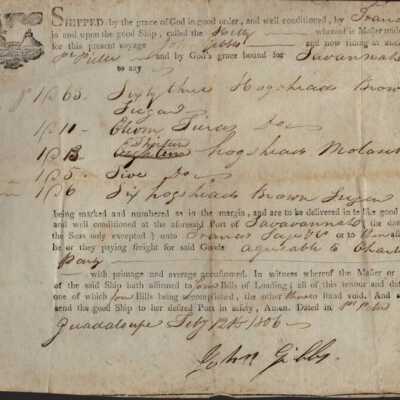 SHIPPED by the grace of God in good order, and well conditioned, by
in and upon the good Ship, called the whereof is Master under
for this present voyage John Gibbs and now riding at anchor
Pr Pitre and by God's grace bound for Savannah
to say
1 @ 63. Sixty three Hogsheads Brown
Sugar
1 @ 11 - Tierces Do
1 @ 13 Thirteen hogsheads Molasses
1 @ 5 - Five Do
1 @ 6 Six hogsheads Brown Sugar
being marked and numbered as in the margin, and are to be delivered in like good
and well conditioned at the aforesaid Port of Savavannah (the dan
the Seas only excepted) unto or
he or they paying freight for said Goods agreeable to Charter
Party
with primage and average accustomed. In witness whereof the Master or
of the said Ship hath affirmed to four Bills of Lading; all of this tenour and date
one of which four Bills being accomplished, the other three to stand void. And so
send the good Ship to her desired Port in safety, Amen. Dated in Pt Petre
Guadaloupe Feby 12th 1806
John Gibbs.